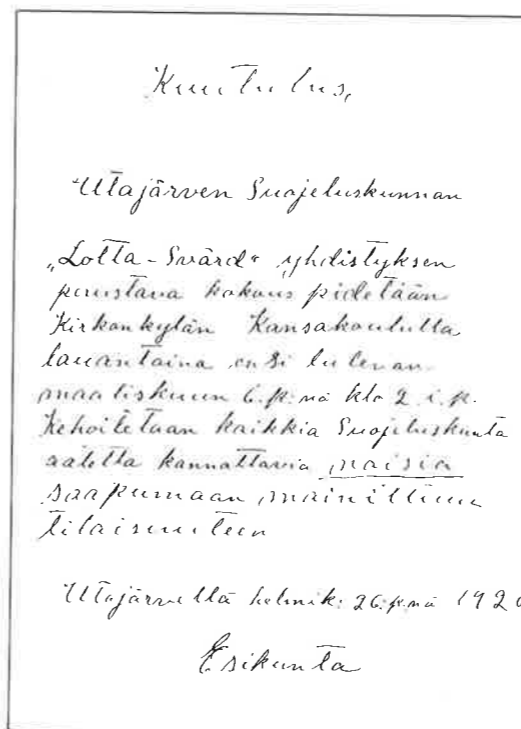 Kuulutus,
Utajärven Suojeluskunnan
„Lotta-Svärd“ yhdistyksen
perustava kokous pidetään
Kirkonkylän Kansakoululla
lauantaina ensi tulevan
maaliskuun 6.p:nä klo 2 i.p.
Kehoitetaan kaikkia Suojeluskunta
aatetta kannattavia naisia
saapumaan mainittuun
tilaisuuteen
Utajärvellä helmik. 26.p:nä 192
Esikunta